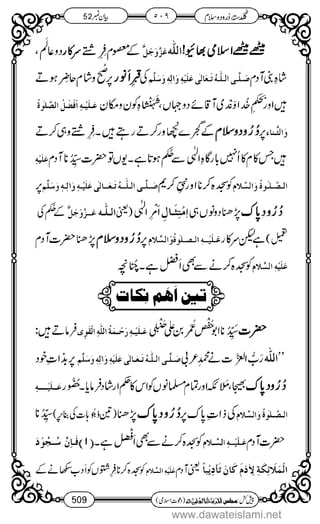 گلدستہ درود و سلام ٥٠٩ بیان نمبر 52
میٹھے میٹھے اسلامی بھائیو! اللہ عَزَّوَجَلَّ کے معصوم فِرِشتے سرکارِ دو عالَم،
شاہِ بنی آدم صَلَّی اللہُ تَعَالٰی عَلَیْہِ وَاٰلِہٖ وَسَلَّم کی قبرِ اَنور پر صُبح و شام حاضِر ہوتے
ہیں اور
پر دُرُود و سلام
ہیں جس کام کا اُنہیں بارگاہِ الٰہی سے حکم ہوتا ہے۔ یوں تو حضرتِ سَیِّدُنا آدم عَلَیْہِ
الصَّلٰوۃُ وَالسَّلَام کو سجدہ کرنا اور نبی کریم صَلَّی اللہُ تَعَالٰی عَلَیْہِ وَاٰلِہٖ وَسَلَّم پر
دُرُودِ پاک پڑھنا دونوں ہی اِمْتِثَالِ اَمْرِ الٰہی (یعنی اللہ عَزَّوَجَلَّ کے حکم کی
تعمیل) ہے لیکن سرکار عَلَیْہِ الصَّلٰوۃُ وَالسَّلَام پر دُرُود و سلام پڑھنا حضرتِ آدم
عَلَیْہِ السَّلَام کو سجدہ کرنے سے بھی افضل ہے۔ چنانچہ
تین اَہَم نکات
حضرتِ سَیِّدُنا ابو حفص عمر بن علی عَلَیْہِ رَحْمَۃُ اللہِ الْقَوِی فرماتے ہیں:
’’اللہ ربُّ العزت نے محمدِ عربی صَلَّی اللہُ تَعَالٰی عَلَیْہِ وَاٰلِہٖ وَسَلَّم پر بذاتِ خود
دُرُودِ پاک بھیجا، پھر ملائکہ اور تمام مسلمانوں کو اس کا حکم ارشاد فرمایا۔ حضور عَلَیْہِ
الصَّلٰوۃُ وَالسَّلَام کی ذاتِ پاک پر دُرُودِ پاک پڑھنا (تین وجوہات کی بنا پر) سَیِّدُنا
حضرتِ آدم عَلَیْہِ السَّلَام کو سجدہ کرنے سے بھی افضل ہے۔ (1) فَاِنَّ سُجُوْدَ
الْمَلٰٓئِکَۃِ لِاٰدَمَ کَانَ تَاْدِیْباً یعنی آدم عَلَیْہِ السَّلَام کو سجدہ کرنا فرشتوں کو آداب سکھانے کے
509
www.dawateislami.net